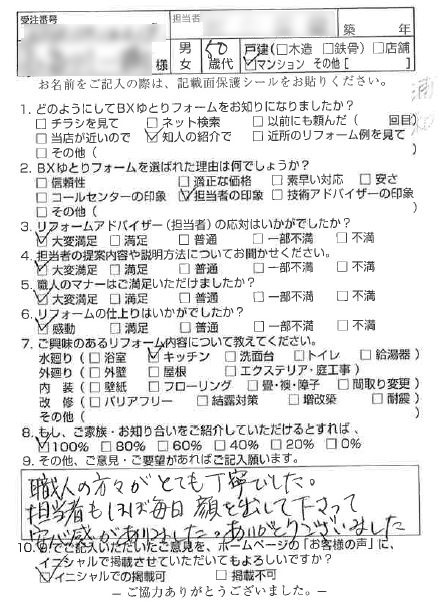 受注番号 担当者 築 年
様 男 女 50歳代 戸建(□木造 □鉄骨) □店舗
☑マンション その他[ ]
お名前をご記入の際は、記載面保護シールをお貼りください。
1. どのようにしてBXゆとりフォームをお知りになりましたか?
□チラシを見て □ネット検索 □以前にも頼んだ( 回目)
□当店が近いので ☑知人の紹介で □近所のリフォーム例を見て
□その他( )
2. BXゆとりフォームを選ばれた理由は何でしょうか?
□信頼性 □適正な価格 □素早い対応 □安さ
□コールセンターの印象 ☑担当者の印象 □技術アドバイザーの印象
□その他( )
3. リフォームアドバイザー(担当者)の応対はいかがでしたか?
☑大変満足 □満足 □普通 □一部不満 □不満
4. 担当者の提案内容や説明方法についてお聞かせください。
☑大変満足 □満足 □普通 □一部不満 □不満
5. 職人のマナーはご満足いただけましたか?
☑大変満足 □満足 □普通 □一部不満 □不満
6. リフォームの仕上りはいかがでしたか?
☑感動 □満足 □普通 □一部不満 □不満
7. ご興味のあるリフォーム内容について教えてください。
水廻り(□浴室 ☑キッチン □洗面台 □トイレ □給湯器)
外廻り(□外壁 □屋根 □エクステリア・庭工事)
内 装(□壁紙 □フローリング □畳・襖・障子 □間取り変更)
改 修(□バリアフリー □結露対策 □増改築 □耐震)
その他( )
8. もし、ご家族・お知り合いをご紹介していただけるとすれば、
☑100% □80% □60% □40% □20% □0%
9. その他、ご意見・ご要望があればご記入願います。
職人の方々がとても丁寧でした。
担当者もほぼ毎日顔を出して下さって
安心感がありました。ありがとうございました
10. 全てご記入いただいたご意見を、ホームページの「お客様の声」に、
イニシャルで掲載させていただいてもよろしいですか?
☑イニシャルでの掲載可 □掲載不可
― ご協力ありがとうございました。―